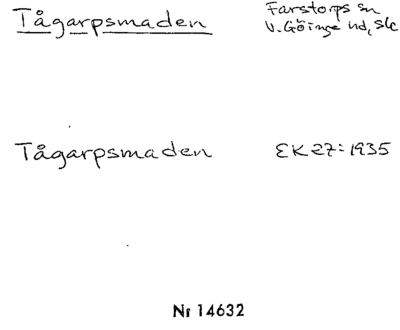 Tågarpsmaden
Farstorps sn
V. Göinge hd, Slc
Tågarpsmaden
EK 27: 1935
Nr 14632